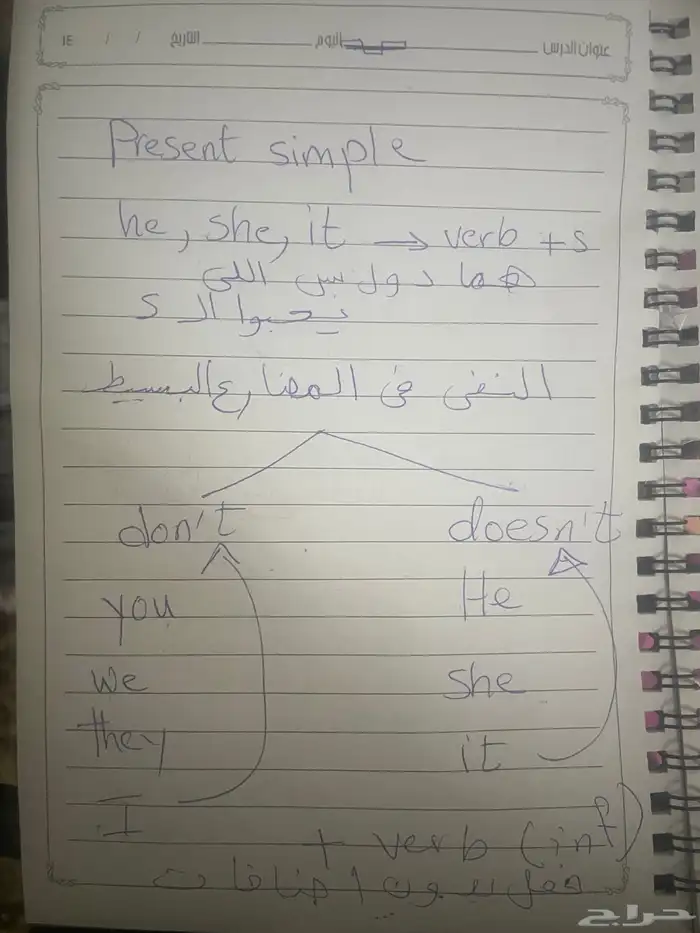 عنوان الدرس اليوم التاريخ / / ١٤
Present simple
he, she, it → verb + s
هما دول بس اللى
يحبوا الـ s
النفى فى المضارع البسيط
don't doesn't
you He
we she
they it
I
+ verb (inf)
فعل بدون اضافات
حراج